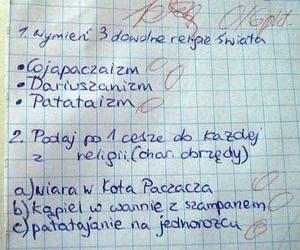 0/6 pkt.
1. Wymień 3 dowolne religie świata
• Cojapaczaizm
• Dariuszanizm
• Patataizm
2. Podaj po 1 cesze do każdej
z religii. (char. obrzędy)
a) wiara w Kota Paczacza
b) kąpiel w wannie z szampanem
c) patatajanie na jednorożcu